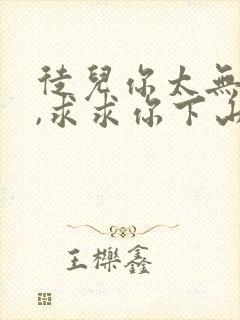 徒兒你太無
,求求你下山
王櫟鑫